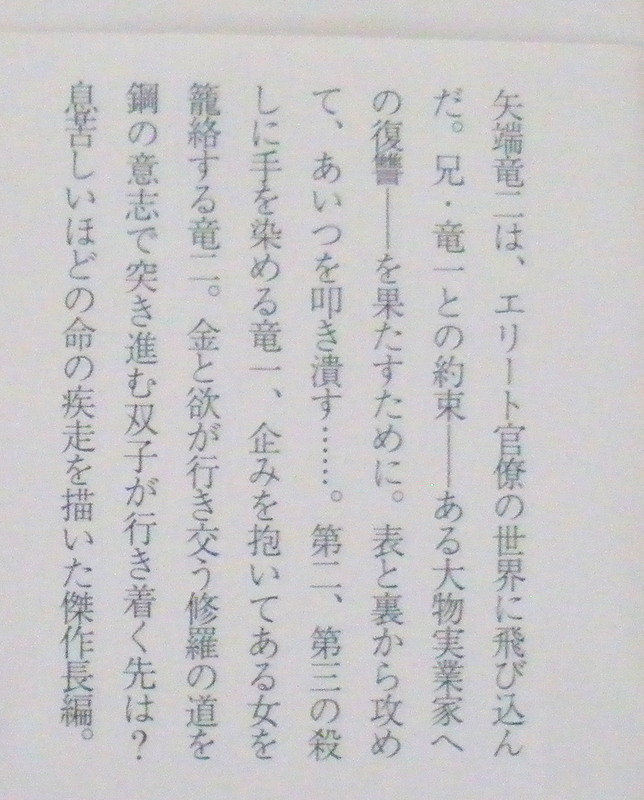 矢端竜二は、エリート官僚の世界に飛び込ん
だ。兄・竜一との約束――ある大物実業家へ
の復讐――を果たすために。表と裏から攻め
て、あいつを叩き潰す……。第二、第三の殺
しに手を染める竜一、企みを抱いてある女を
籠絡する竜二。金と欲が行き交う修羅の道を
鋼の意志で突き進む双子が行き着く先は？
息苦しいほどの命の疾走を描いた傑作長編。